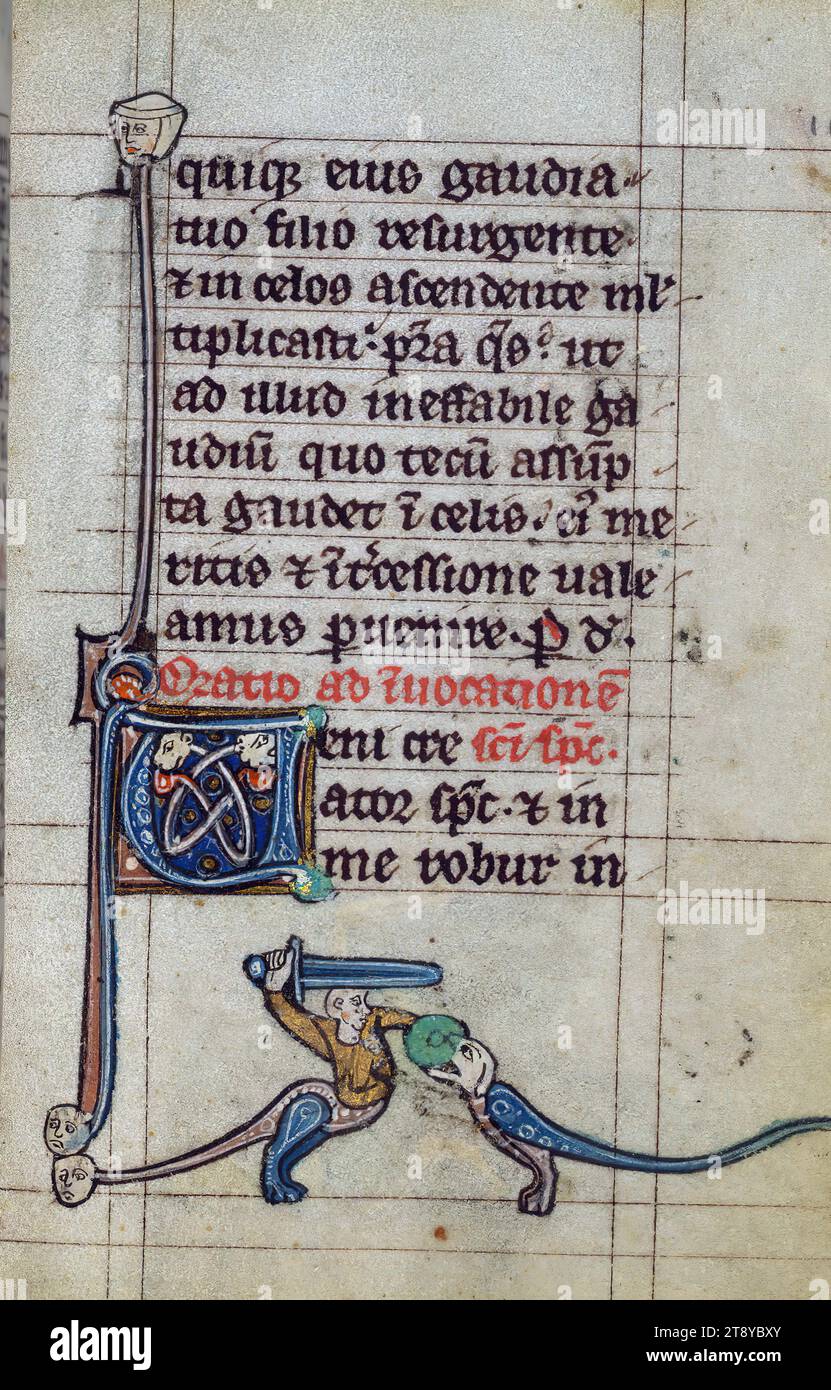 quiqꝫ eius gaudia
tuo filio resurgente.
⁊ in celos ascendente ml'
tiplicasti: p̄ra q̄s. ut
ad illud ineffabile ga
udiū quo tecū assūp
ta gaudet ī celis. ei' me
ritis ⁊ īt'cessione uale
amus puenire. p d'.
Oratio ad īuocationē
Veni cre sc̄i sp̄c.
ator sp̄c. ⁊ in
me robur in
alamy
alamy
alamy
Image ID: 2T8YBXY
www.alamy.com